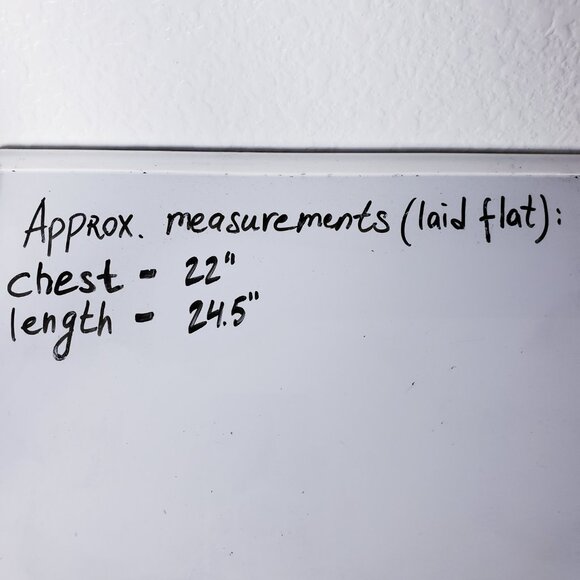 Approx. measurements (laid flat):
chest - 22"
length - 24.5"